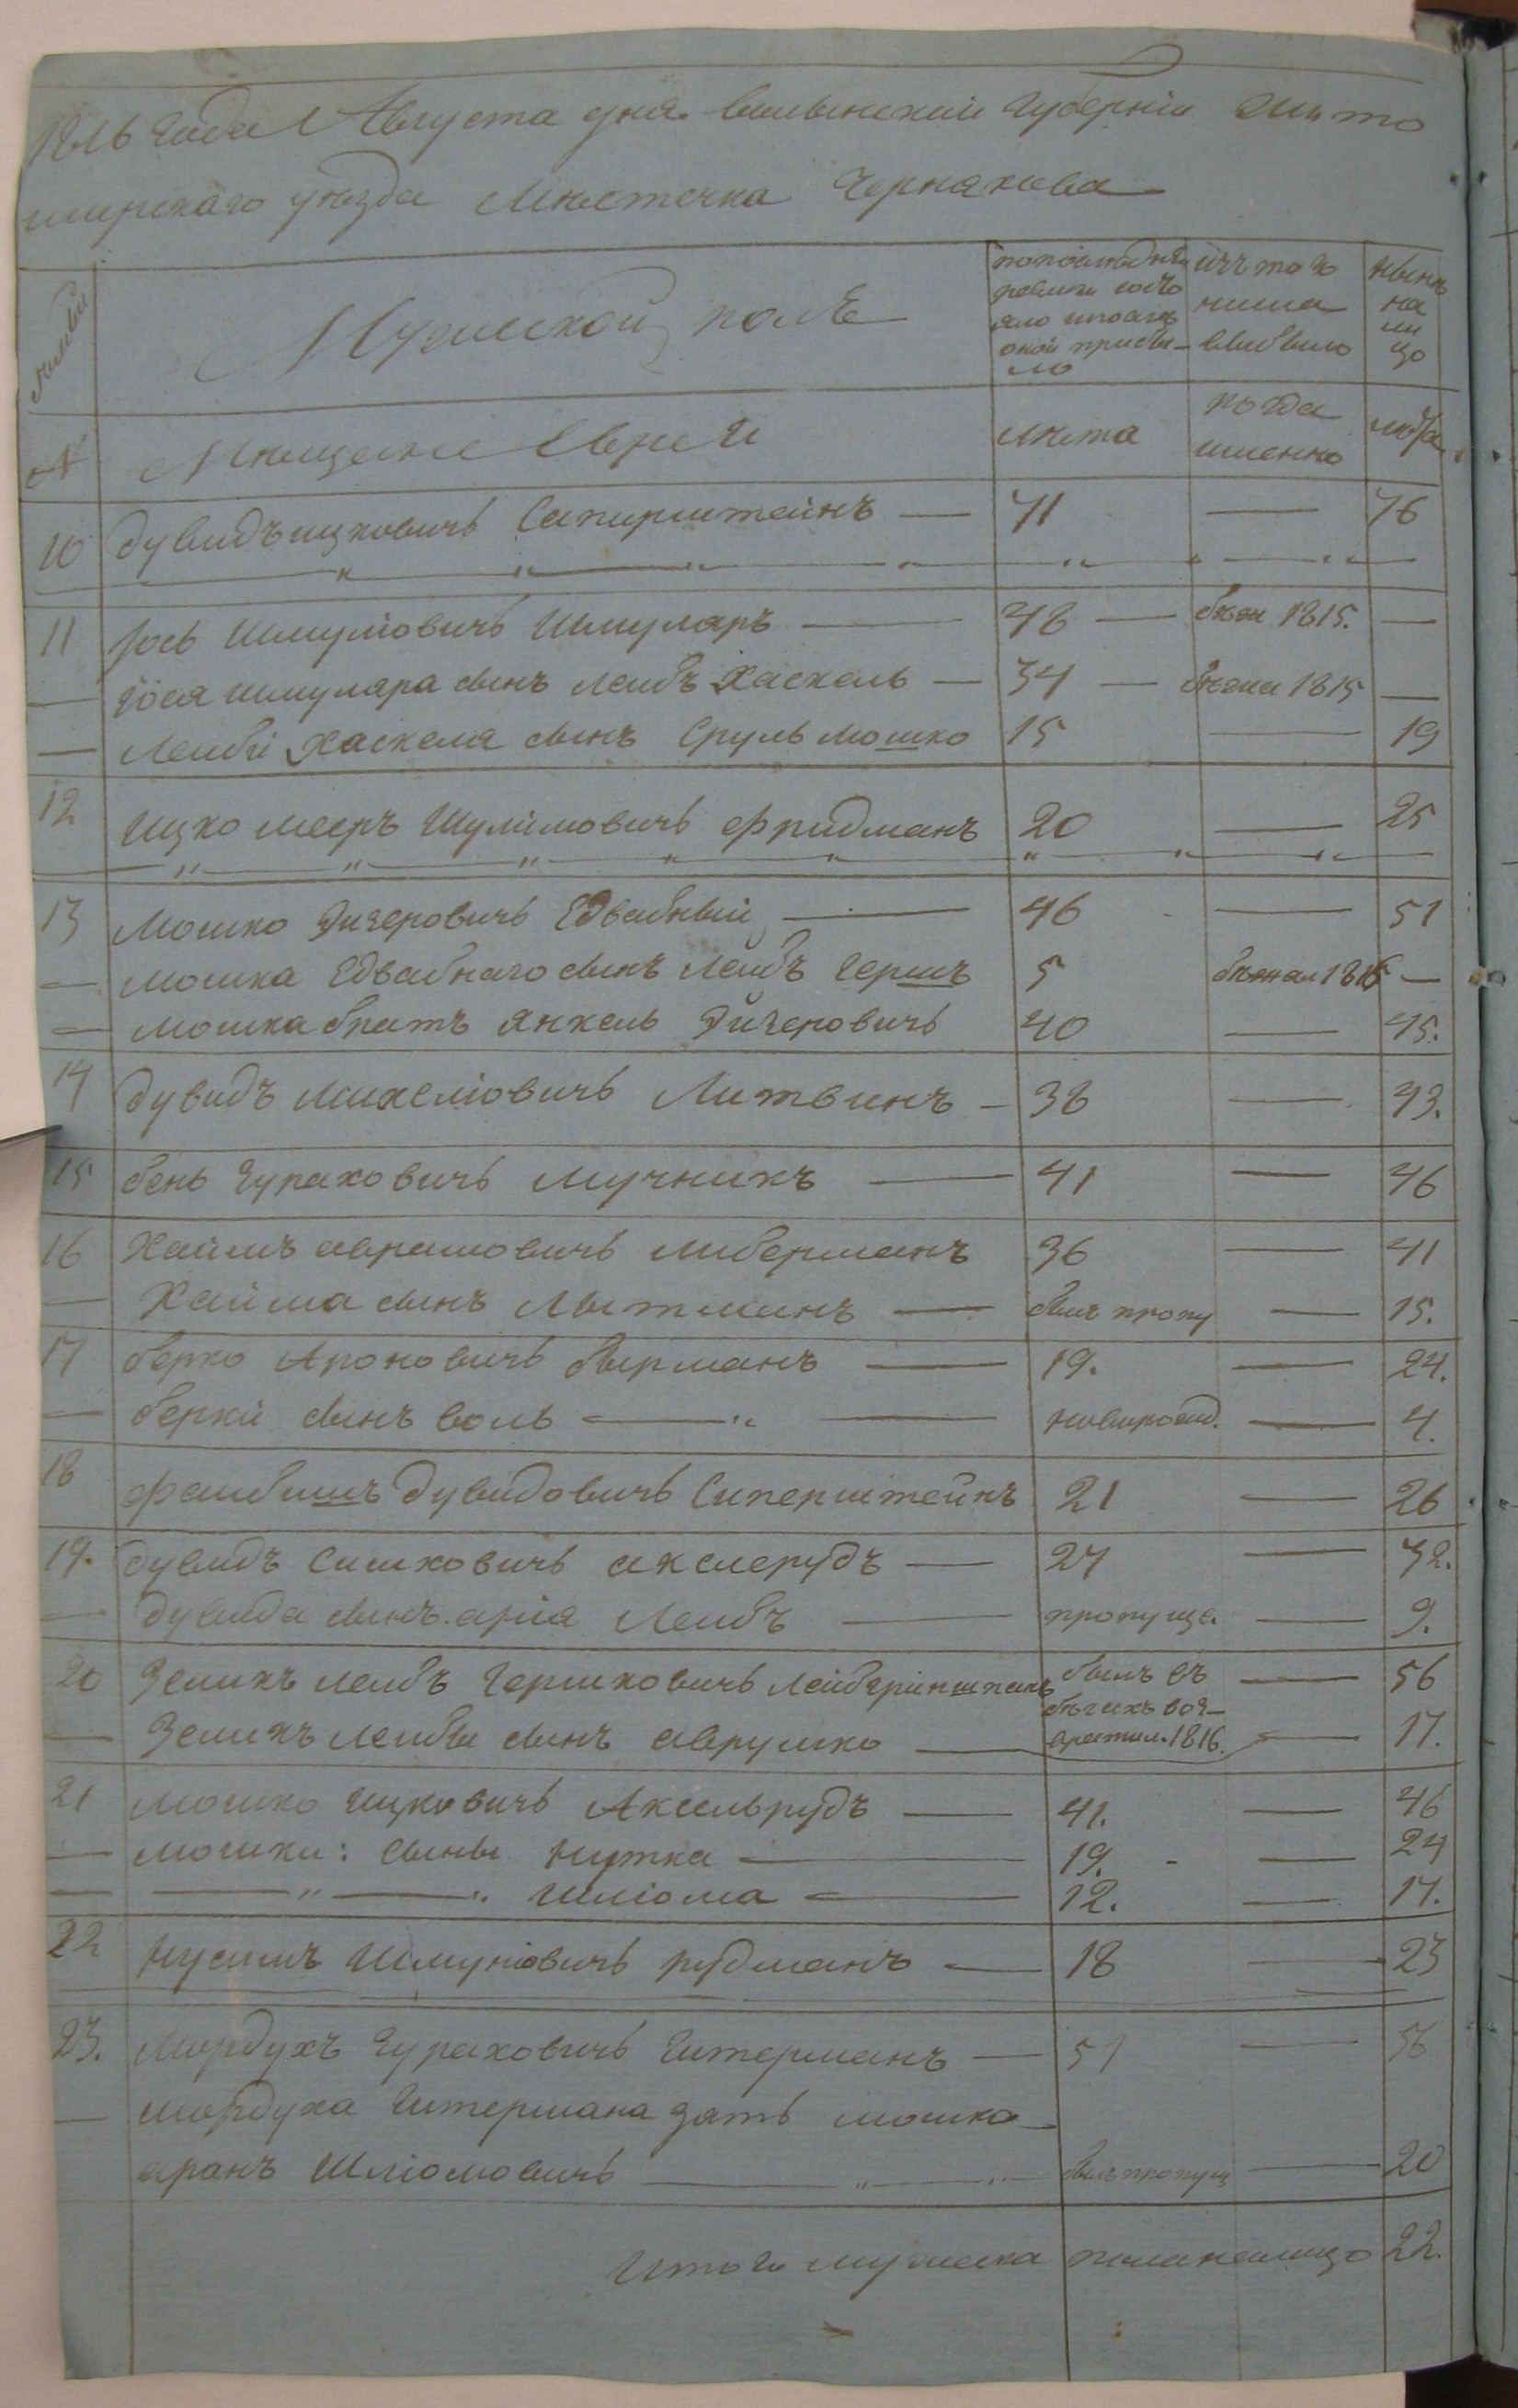 1816 года Августа дня волынской губернiи жито
мирскаго уѣзда Мѣстечка Черняхова
Мужеской полъ
по послѣдней ревизiи состояло и после оной прибыло
изъ того числа выбыло
нынѣ на лицо
№ Мѣщане Евреи лѣта когда именно лѣта
10 Дувидъ ицковичь Сапирштейнъ — 71 — 76
11 Iось Шмулiовичь Шмуляръ — 48 — бѣжа 1815. —
— Iося шмуляра сынъ Лейбъ Хаскель — 34 — бѣжа 1815 —
— Лейби Хаскеля сынъ Сруль мошко 15 — 19
12 Ицко мееръ Шулимовичь Фридманъ 20 — 25
13 Мошко Эйзеровичь Едвабный — 46 — 51
— мошка Едвабнаго сынъ Лейбъ гершъ 5 бѣжал 1816 —
— мошка братъ янкель Эйзеровичь 40 — 45.
14 Дувидъ михелiовичь Литвинъ — 38 — 43.
15 бень Гураховичь мучникъ — 41 — 46
16 Хаимъ аврамовичь либерманъ 36 — 41
— Хаима сынъ Лытманъ — былъ пропу — 15.
17 берко Ароновичь бирманъ — 19. — 24.
— берки сынъ воль — новорожд. — 4.
18 Файбишъ Дувидовичь Сиперштейнъ 21 — 26
19. Дувидъ Сишковичь акслерудъ — 27 — 32.
— Дувида сынъ арiя Лейбъ — пропуще. — 9.
20 Зелихъ лейбъ Гершковичь Лейбгриншпанъ былъ въ — 56
бѣгахъ воз-
— Зелихъ лейбы сынъ аврумко — вратил. 1816. — 17.
21 мошко ицковичь Аксельрудъ — 41. — 46
— мошки: сыны Нутка — 19. - — 24
— — " — " Шлiома — 12. — 17.
22 Нусимъ Шмулiовичь рудманъ — 18 — 23
23. Мордухъ Гураховичь Гитерманъ — 51 — 56
— мордуха Гитермана зять мошко
аранъ Шлiомовичь — былъ пропущ — 20
Итого мужеска пола налицо 22.